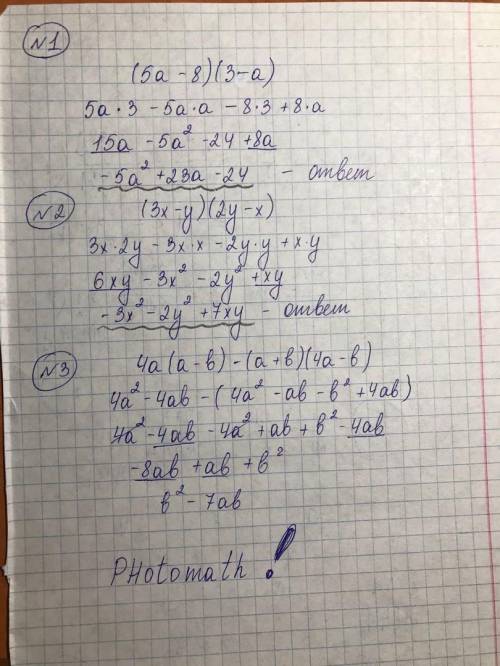 №1
(5a - 8)(3 - a)
5a · 3 - 5a · a - 8 · 3 + 8 · a
15a - 5a² - 24 + 8a
- 5a² + 23a - 24 - ответ
№2
(3x - y)(2y - x)
3x · 2y - 3x · x - 2y · y + x · y
6xy - 3x² - 2y² + xy
- 3x² - 2y² + 7xy - ответ
№3
4a(a - в) - (a + в)(4a - в)
4a² - 4aв - (4a² - aв - в² + 4aв)
4a² - 4aв - 4a² + aв + в² - 4aв
- 8aв + aв + в²
в² - 7aв
PHotomath!